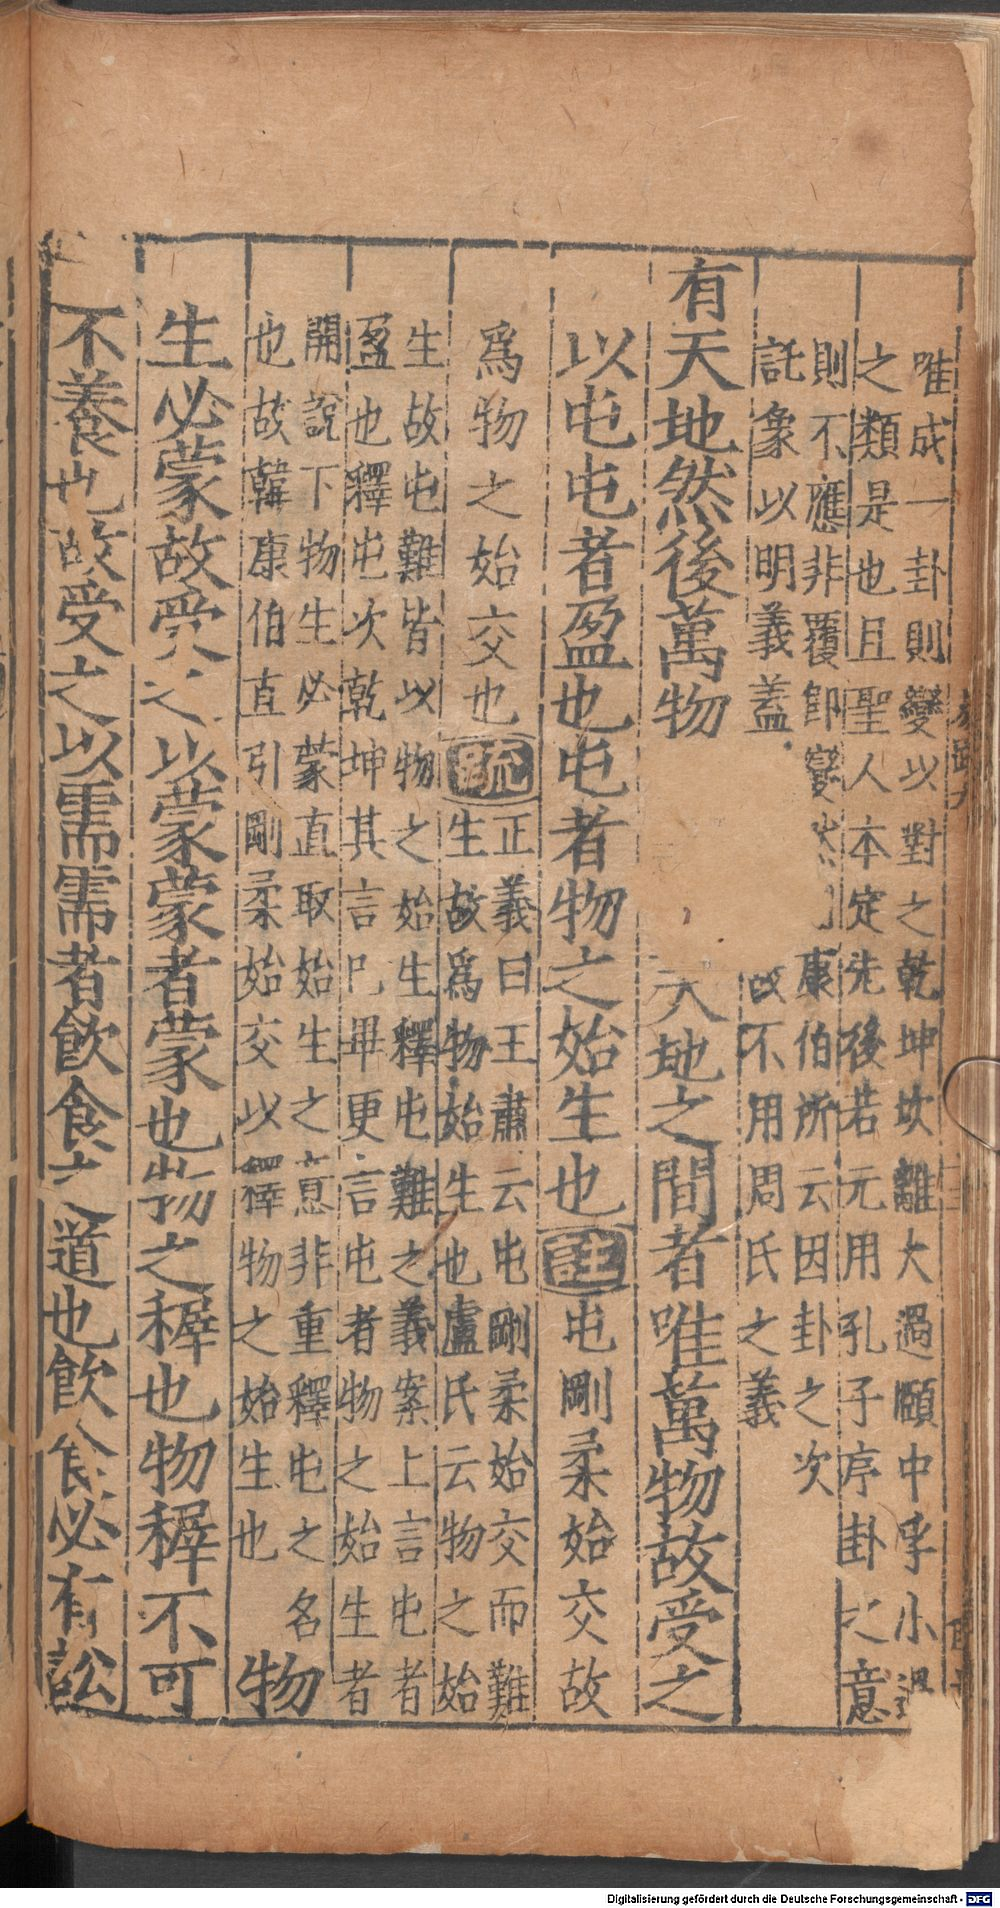 唯成一卦則變以對之乾坤坎離大過頤中孚小過
之類是也且聖人本定先後若元用孔子序卦之意
則不應非覆即變 康伯所云因卦之次
託象以明義蓋 不用周氏之義
有天地然後萬物 天地之間者唯萬物故受之
以屯屯者盈也屯者物之始生也註屯剛柔始交故
爲物之始交也疏
正義曰王肅云屯剛柔始交而難
生故爲物始生也盧氏云物之始
生故屯難皆以物之始生釋屯難之義案上言屯者
盈也釋屯次乾坤其言已畢更言屯者物之始生者
開說下物生必蒙直取始生之意非重釋屯之名
也故韓康伯直引剛柔始交以釋物之始生也
物
生必蒙故受之以蒙蒙者蒙也物之穉也物穉不可
不養也故受之以需需者飲食之道也飲食必有訟
Digitalisierung gefördert durch die Deutsche Forschungsgemeinschaft - DFG